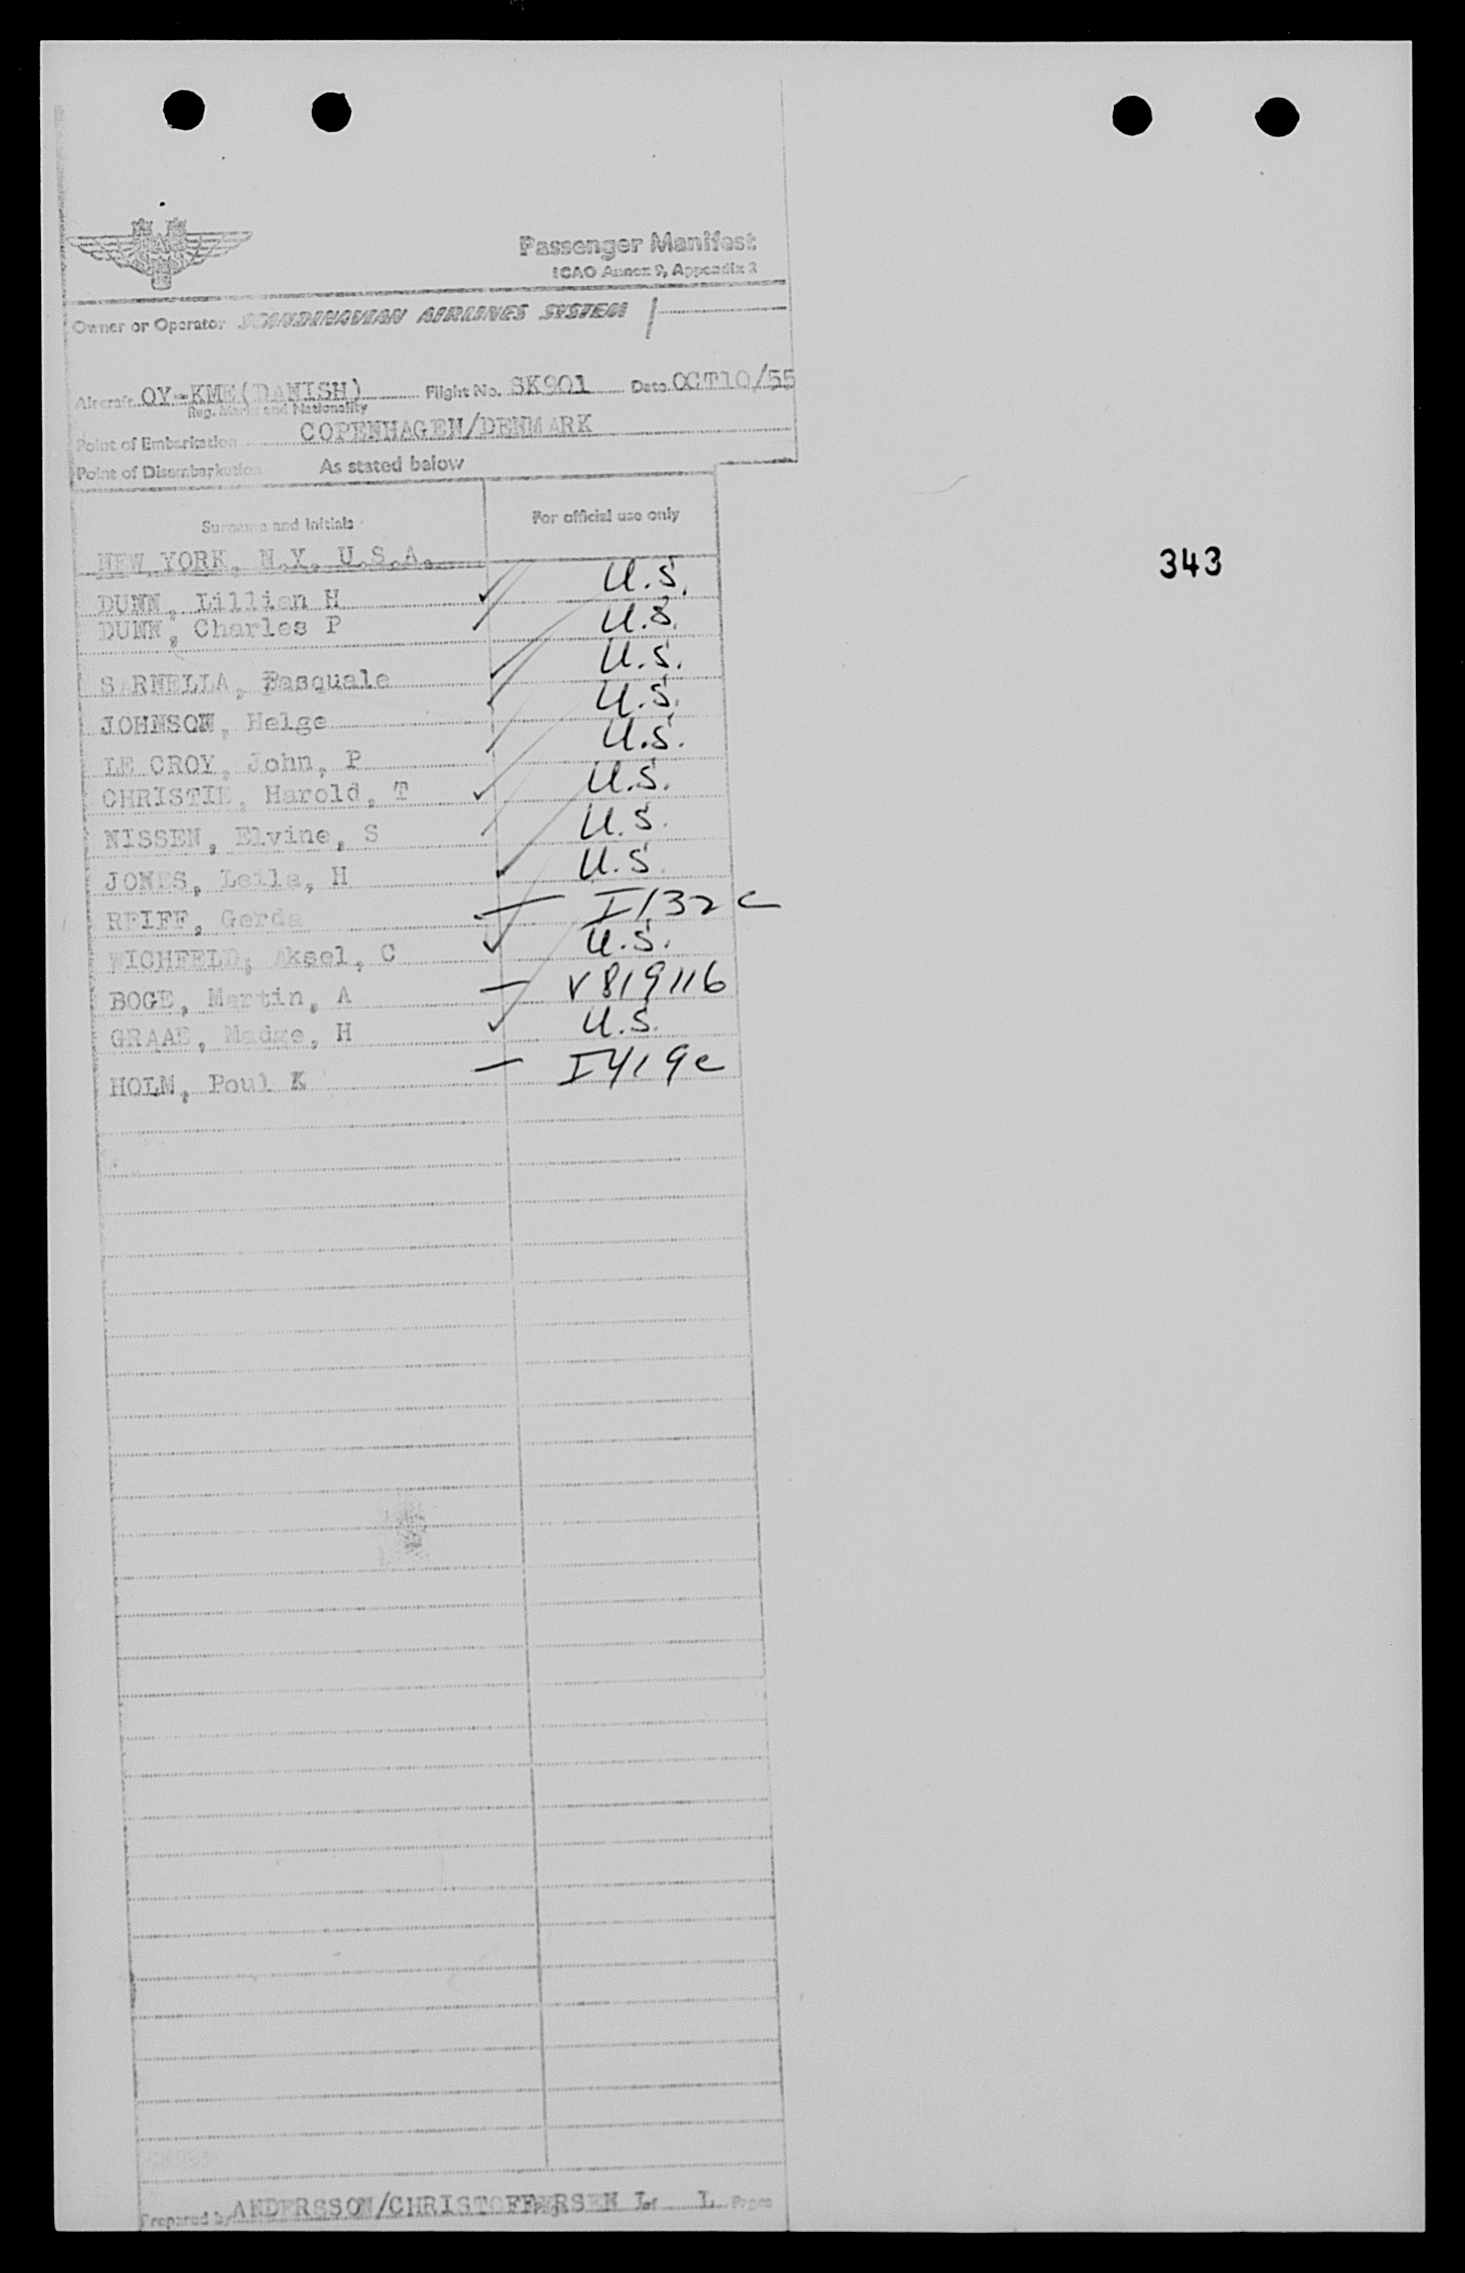 Passenger Manifest
ICAO Annex 9, Appendix 2
Owner or Operator SCANDINAVIAN AIRLINES SYSTEM
Aircraft OY-KME(DANISH) Flight No. SK901 Date OCT10/55
Reg. Marks and Nationality
Point of Embarkation COPENHAGEN/DENMARK
Point of Disembarkation As stated below
Surname and Initials For official use only
NEW YORK, N.Y. U.S.A.
DUNN, Lillian H ✓ U.S.
DUNN, Charles P U.S.
SARNELLA, Pasquale U.S.
JOHNSON, Helge U.S.
LE CROY, John, P U.S.
CHRISTIE, Harold, T ✓ U.S.
NISSEN, Elvine, S U.S.
JONES, Leila, H ✓ U.S.
REIFF, Gerda — I132c
WICHFELD, Aksel, C ✓ U.S.
BOGE, Martin, A — V819116
GRAAE, Madge, H ✓ U.S.
HOLM, Poul K — I419c
343
Prepared by ANDERSSON/CHRISTOFFERSEN Page 1 of 1 Pages